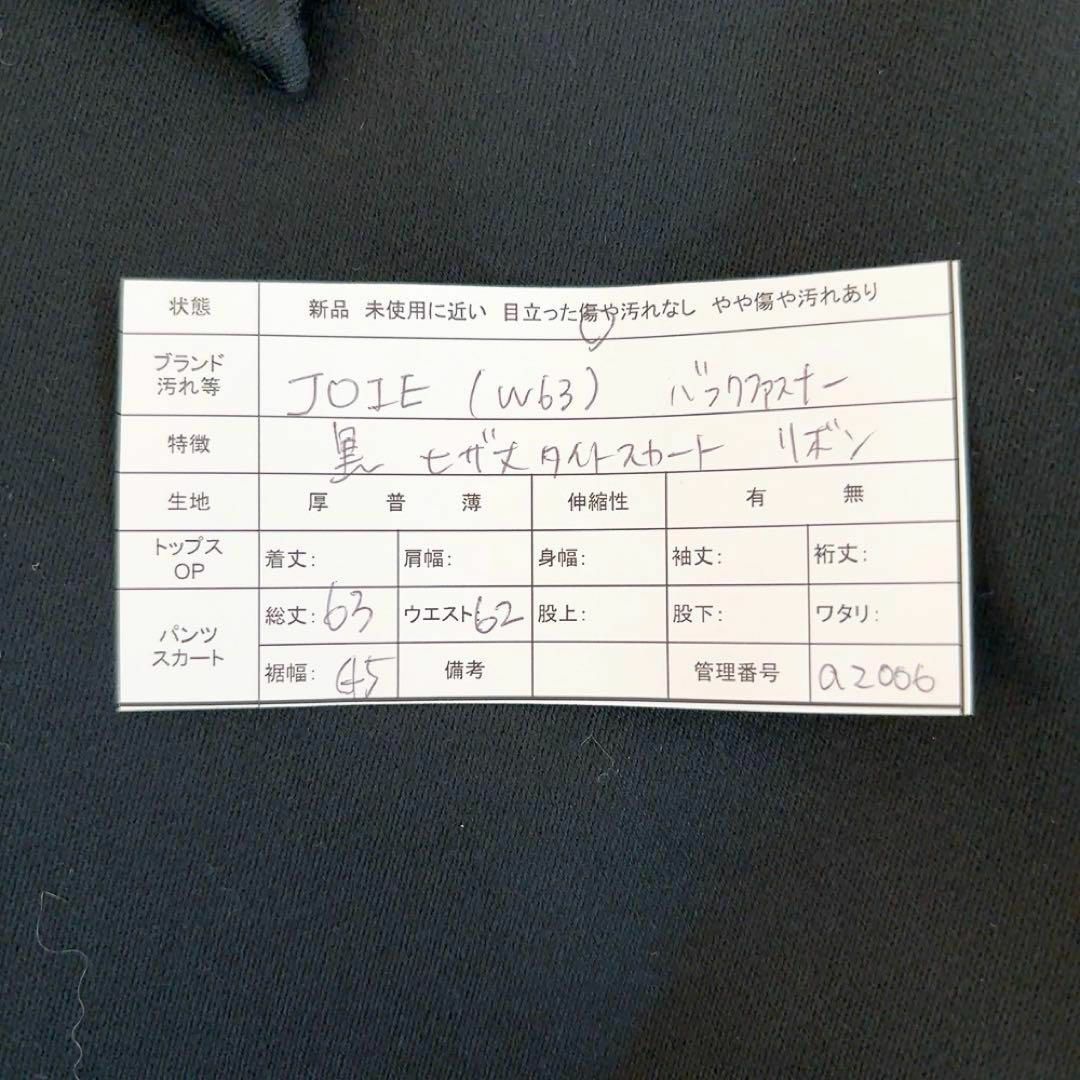 状態 新品 未使用に近い 目立った傷や汚れなし やや傷や汚れあり
ブランド
汚れ等 JOIE (W63) バックファスナー
特徴 黒 ヒザ丈タイトスカート リボン
生地 厚 普 薄 伸縮性 有 無
トップス
OP 着丈: 肩幅: 身幅: 袖丈: 裄丈:
パンツ
スカート 総丈: 63 ウエスト: 62 股上: 股下: ワタリ:
裾幅: 45 備考 管理番号 a2006